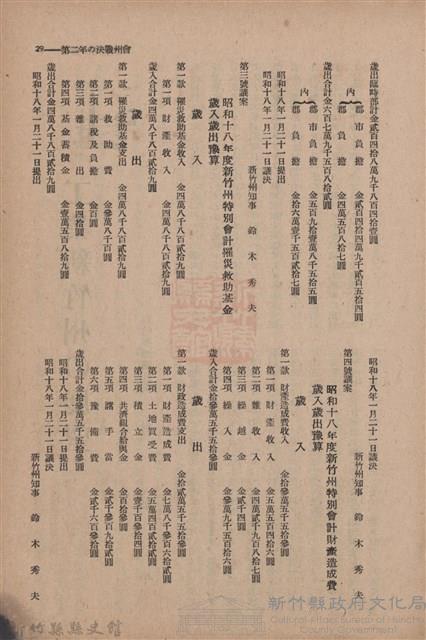 29——第二年の決戰州會
歲出臨時部計金貳百四拾八萬九千八百四拾壹圓
內
郡市負擔 金貳百四拾四萬四千貳百五拾四圓
郡負擔 金四萬五千五百八拾七圓
歲出合計金六百七萬九千五百八拾貳圓
內
郡市負擔 金五百九拾壹萬八千五拾五圓
郡負擔 金拾六萬壹千五百貳拾七圓
昭和十八年一月二十一日提出
昭和十八年一月二十一日議決
新竹州知事 鈴木秀夫
第三號議案
昭和十八年度新竹州特別會計罹災救助基金
歲入歲出豫算
歲入
第一款 罹災救助基金收入 金四萬八千八百貳拾九圓
第一項 財產收入 金四萬八千八百貳拾九圓
歲入合計金四萬八千八百貳拾九圓
歲出
第一款 罹災救助基金支出 金四萬八千八百貳拾九圓
第一項 救助費 金參萬八千百圓
第二項 諸稅及負擔 金百圓
第三項 雜出 金四拾圓
第四項 基金蓄積金 金壹萬五百八拾九圓
歲出合計金四萬八千八百貳拾九圓
昭和十八年一月二十一日提出
昭和十八年一月二十一日議決
新竹州知事 鈴木秀夫
第四號議案
昭和十八年度新竹州特別會計財產造成費
歲入歲出豫算
歲入
第一款 財產造成費收入 金拾參萬五千五拾參圓
第一項 財產收入 金五萬五百四拾六圓
第二項 雜收入 金四萬貳千九百八拾壹圓
第三項 繰越金 金貳千圓
第四項 繰入金 金參萬九千五百拾六圓
歲入合計金拾參萬五千五拾參圓
歲出
第一款 財政造成費支出 金拾參萬五千五拾參圓
第一項 造成費 金七萬八千參百六拾六圓
第二項 土地買受費 金五萬四百貳拾圓
第三項 積立金 金壹千百參拾四圓
第四項 共濟組合給與金 金百拾參圓
第五項 諸手當 金貳千參百九拾貳圓
第六項 豫備費 金貳千六百參拾八圓
歲出合計金拾參萬五千五拾參圓
昭和十八年一月二十一日提出
昭和十八年一月二十一日議決
新竹州知事 鈴木秀夫
新竹縣縣史館
新竹縣政府文化局
Cultural Affairs Bureau of Hsinchu